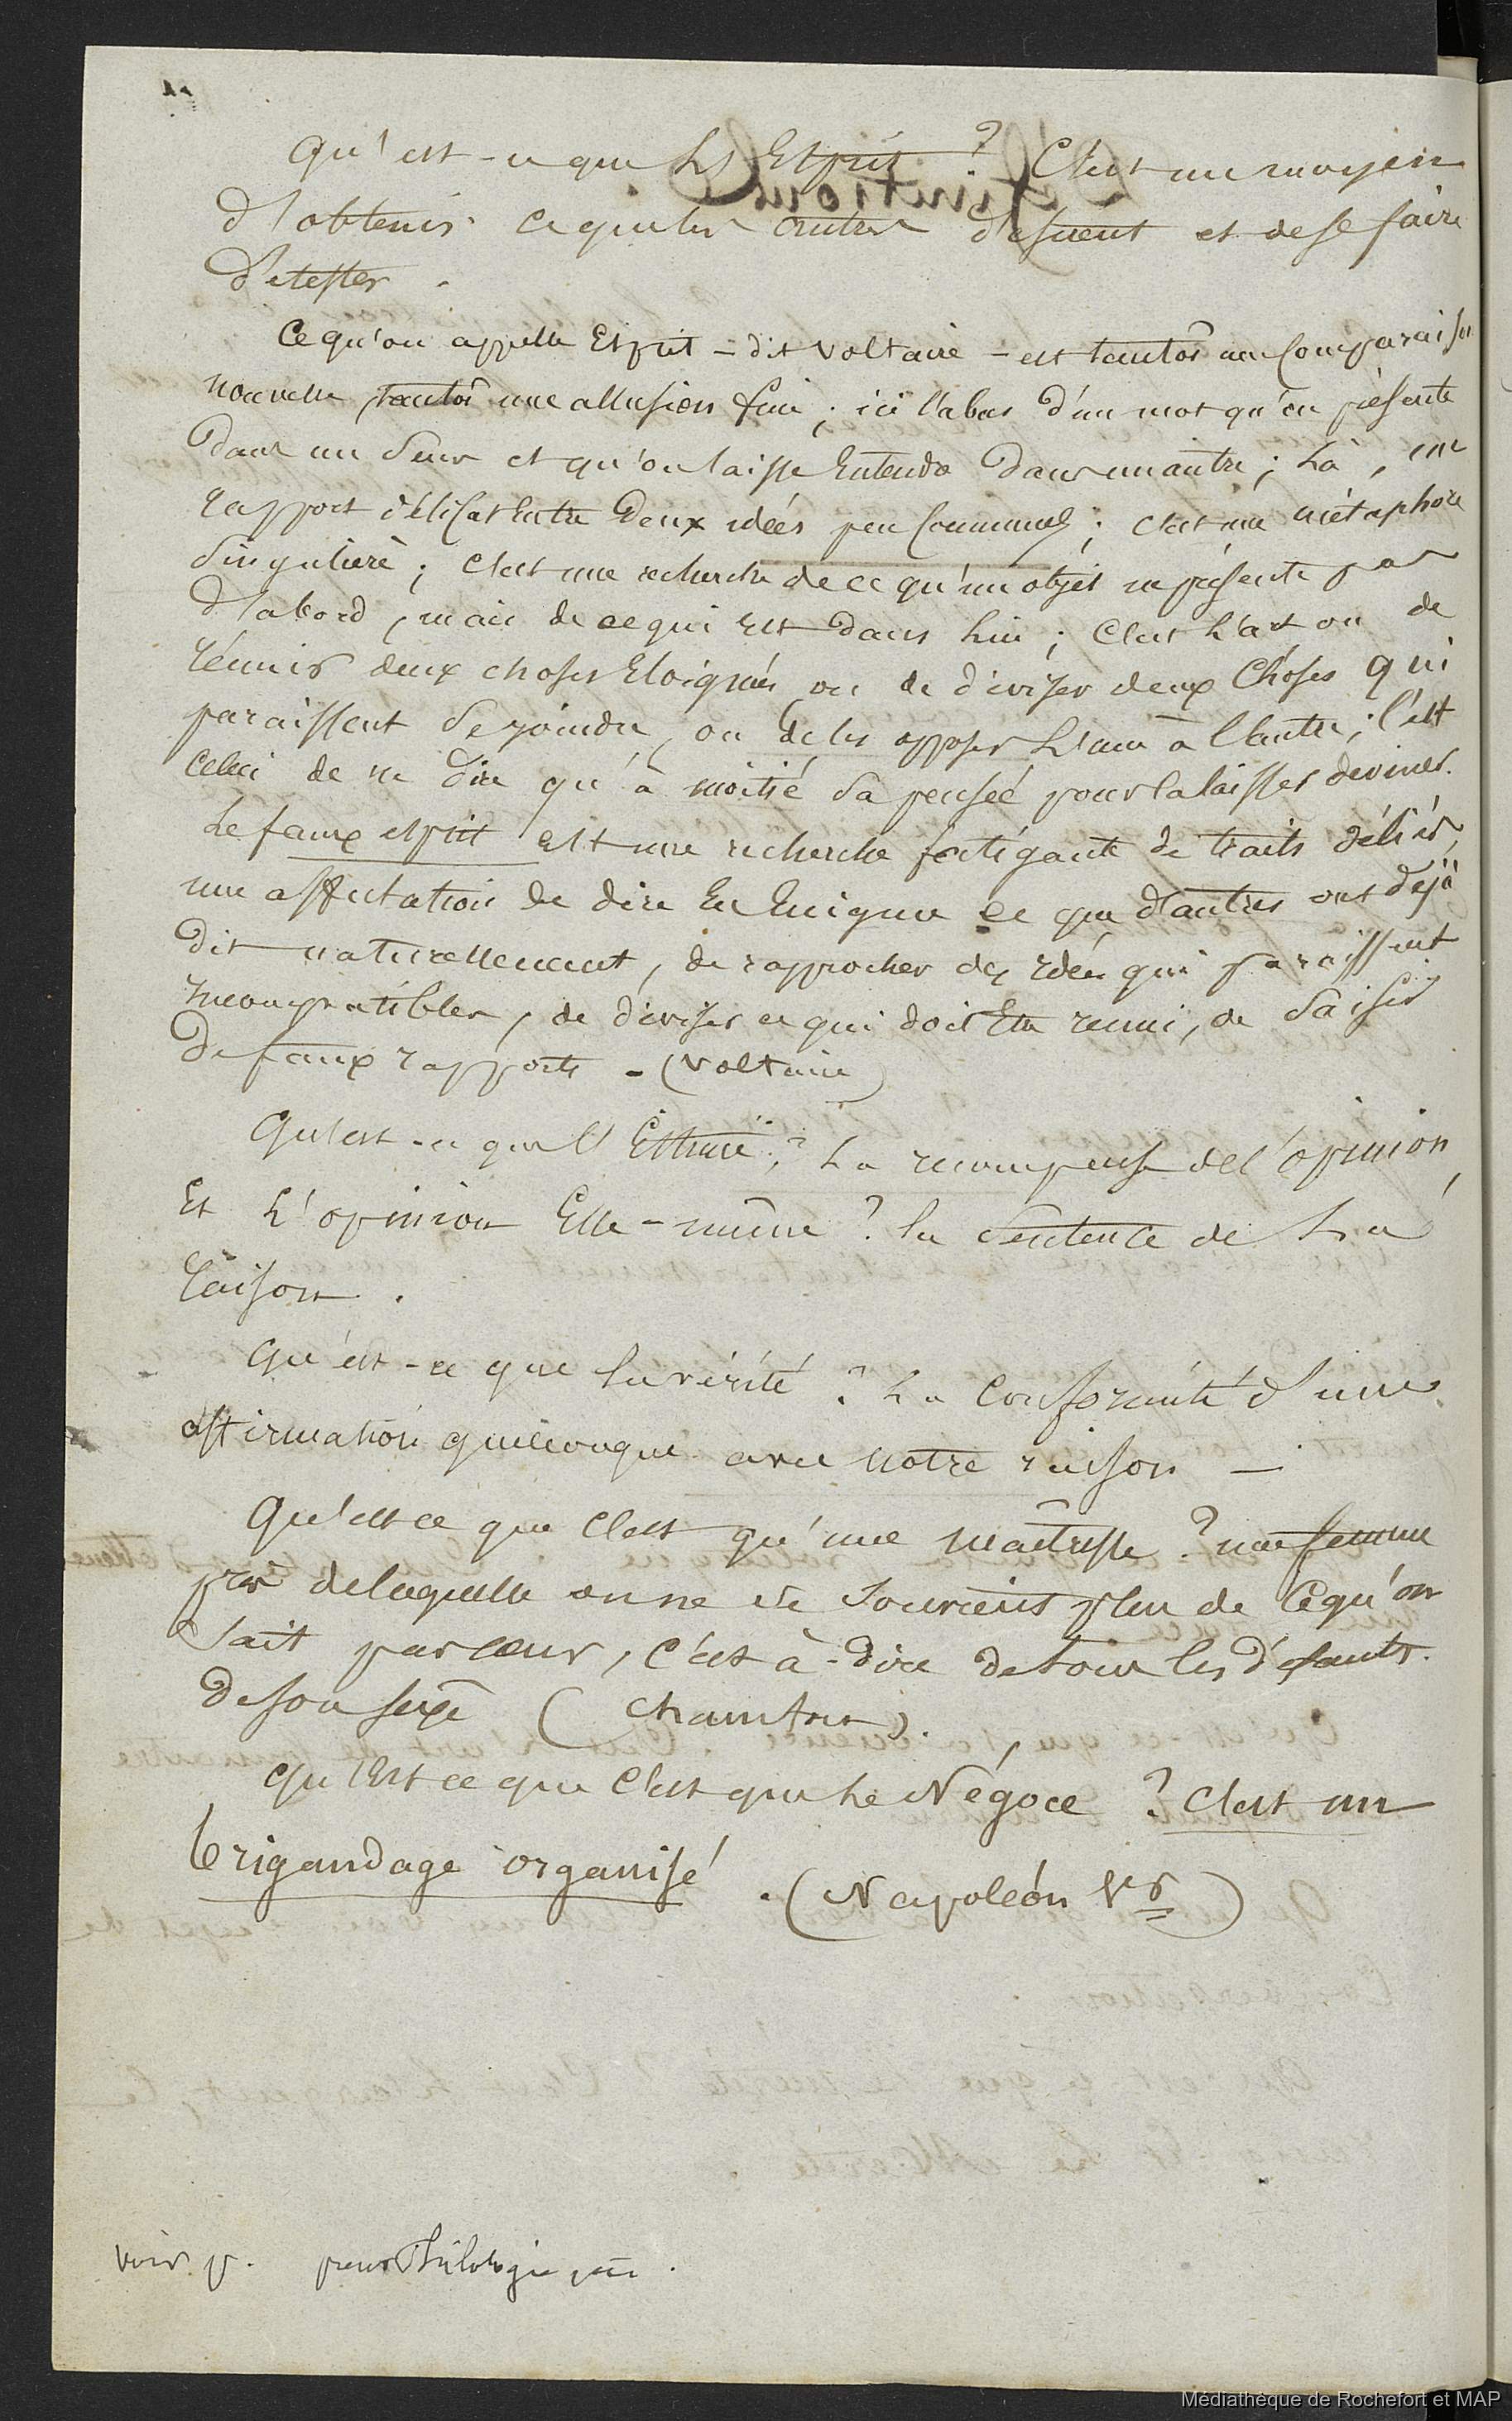 Qu'est-ce que l'Esprit ? C'est un moyen
d'obtenir ce que les autres désirent et de se faire
détester.
Ce qu'on appelle Esprit – dit Voltaire – est tantôt une comparaison
nouvelle, tantôt une allusion fine ; ici l'abus d'un mot qu'on présente
dans un sens et qu'on laisse entendre dans un autre ; là, un
rapport délicat entre deux idées peu communes ; c'est une métaphore
singulière ; c'est une recherche de ce qu'un objet ne présente pas
d'abord, mais de ce qui est dans lui ; c'est l'art ou de
réunir deux choses éloignées, ou de diviser deux choses qui
paraissent se joindre, ou de les opposer l'une à l'autre ; c'est
celui de ne dire qu'à moitié sa pensée pour la laisser deviner.
Le faux esprit est une recherche fatigante de traits déliés,
une affectation de dire en énigme ce que d'autres ont déjà
dit naturellement, de rapprocher des idées qui paraissent
incompatibles, de diviser ce qui doit être réuni, de saisir
de faux rapports – (Voltaire)
Qu'est-ce que l'Estime ? La récompense de l'opinion,
Et l'opinion Elle-même ? la sentence de la
raison.
Qu'est-ce que la vérité ? La conformité d'une
affirmation quelconque avec notre raison –
Qu'est ce que c'est qu'une maîtresse ? une femme
près de laquelle on ne se souvient plus de ce qu'on
sait par cœur, c'est-à-dire de tous les défauts
de son sexe (Chamfort).
Qu'est ce que c'est que le Négoce ? C'est un
brigandage organisé. (Napoléon Ier)
voir p. pour
Médiathèque de Rochefort et MAP